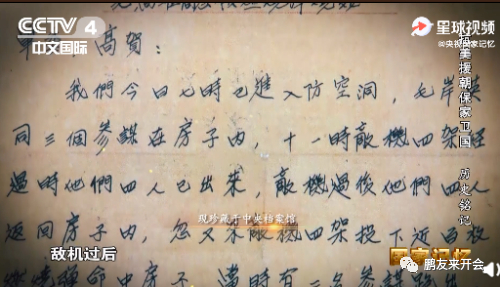 CCTV 4
中文国际
星球视频
@央视国家记忆
高賀：
我們今日七時已進入防空洞，毛岸英
同三個參謀在房子內，十一時敵機四架經
過時他們四人已出來，敵機過後他們四人
返回房子內，忽又來敵機四架投下近百枚
命中房子，當時有二名參謀
抗美援朝保家卫国 历史铭记
现珍藏于中央档案馆
敌机过后
国家记忆
鹏友来开会